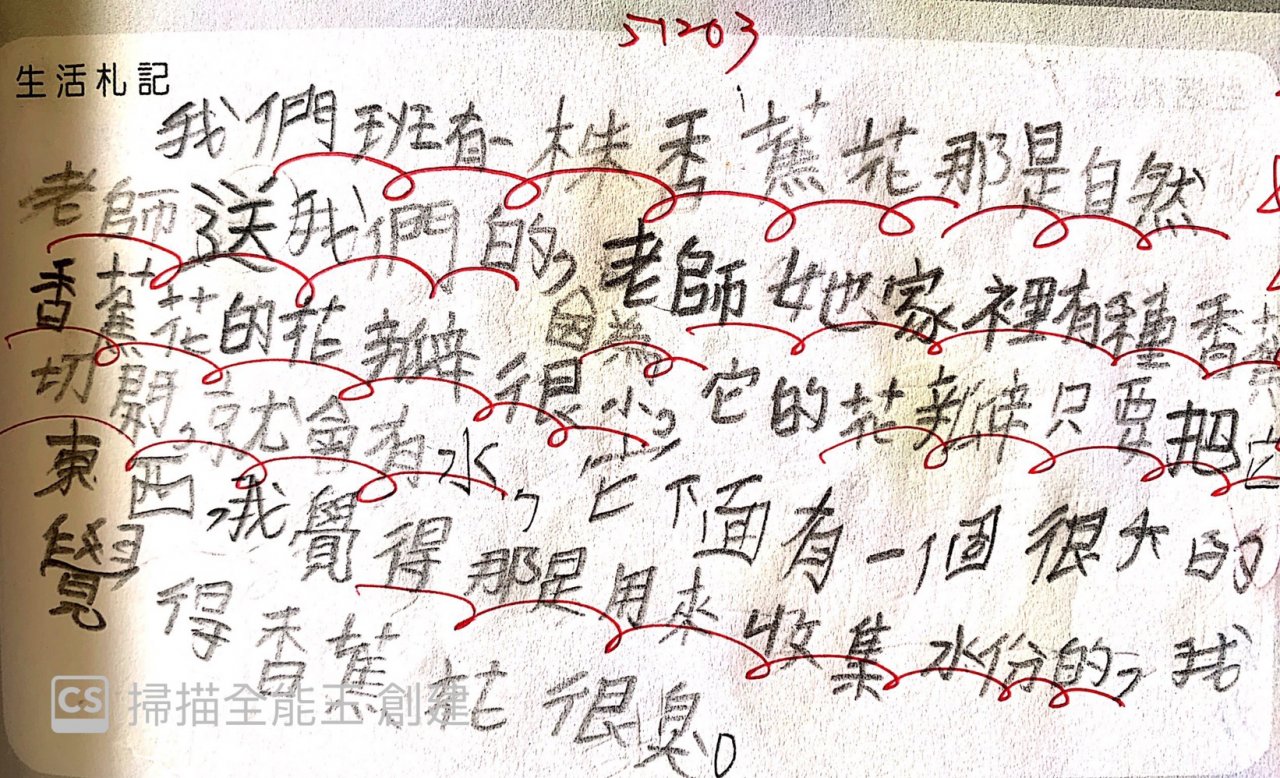 51203
生活札記
我們班有一株香蕉花那是自然
老師送我們的,因為老師她家裡有種香蕉
香蕉花的花瓣很小,它的花瓣只要把它
切開,就會有水,它下面有一個很大的
東西,我覺得那是用來收集水份的,我
覺得香蕉花很臭。
CS 掃描全能王 創建